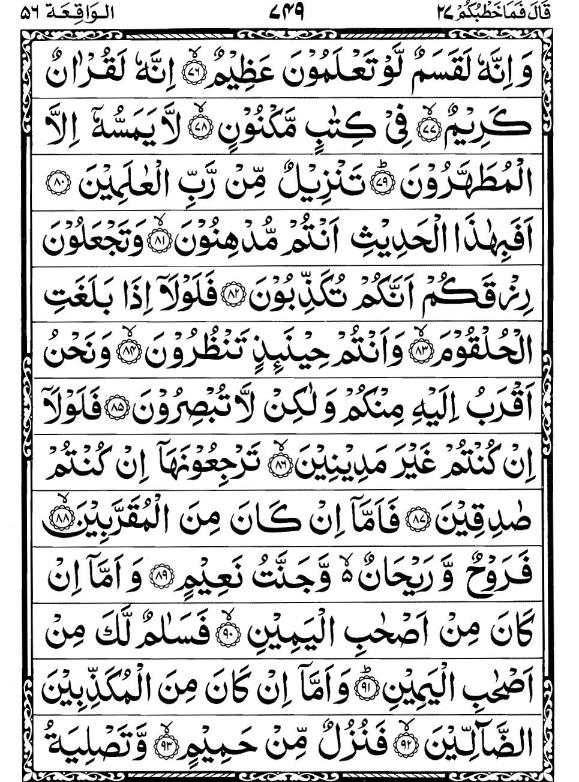 قَالَ فَمَا خَطْبُكُمْ ٢٧ ٧٤٩ الواقعة ٥٦
وَ اِنَّهٗ لَقَسَمٌ لَّوْ تَعْلَمُوْنَ عَظِيْمٌۙ ﴿۷۶﴾ اِنَّهٗ لَقُرْاٰنٌ
كَرِيْمٌۙ ﴿۷۷﴾ فِيْ كِتٰبٍ مَّكْنُوْنٍۙ ﴿۷۸﴾ لَّا يَمَسُّهٗۤ اِلَّا
الْمُطَهَّرُوْنَؕ ﴿۷۹﴾ تَنْزِيْلٌ مِّنْ رَّبِّ الْعٰلَمِيْنَ ﴿۸۰﴾
اَفَبِهٰذَا الْحَدِيْثِ اَنْتُمْ مُّدْهِنُوْنَۙ ﴿۸۱﴾ وَ تَجْعَلُوْنَ
رِزْقَكُمْ اَنَّكُمْ تُكَذِّبُوْنَ ﴿۸۲﴾ فَلَوْ لَاۤ اِذَا بَلَغَتِ
الْحُلْقُوْمَۙ ﴿۸۳﴾ وَ اَنْتُمْ حِيْنَىِٕذٍ تَنْظُرُوْنَۙ ﴿۸۴﴾ وَ نَحْنُ
اَقْرَبُ اِلَيْهِ مِنْكُمْ وَ لٰكِنْ لَّا تُبْصِرُوْنَ ﴿۸۵﴾ فَلَوْ لَاۤ
اِنْ كُنْتُمْ غَيْرَ مَدِيْنِيْنَۙ ﴿۸۶﴾ تَرْجِعُوْنَهَاۤ اِنْ كُنْتُمْ
صٰدِقِيْنَ ﴿۸۷﴾ فَاَمَّاۤ اِنْ كَانَ مِنَ الْمُقَرَّبِيْنَۙ ﴿۸۸﴾
فَرَوْحٌ وَّ رَيْحَانٌ۬ۙ وَّ جَنَّتُ نَعِيْمٍ ﴿۸۹﴾ وَ اَمَّاۤ اِنْ
كَانَ مِنْ اَصْحٰبِ الْيَمِيْنِۙ ﴿۹۰﴾ فَسَلٰمٌ لَّكَ مِنْ
اَصْحٰبِ الْيَمِيْنِؕ ﴿۹۱﴾ وَ اَمَّاۤ اِنْ كَانَ مِنَ الْمُكَذِّبِيْنَ
الضَّآلِّيْنَۙ ﴿۹۲﴾ فَنُزُلٌ مِّنْ حَمِيْمٍۙ ﴿۹۳﴾ وَّ تَصْلِيَةُ